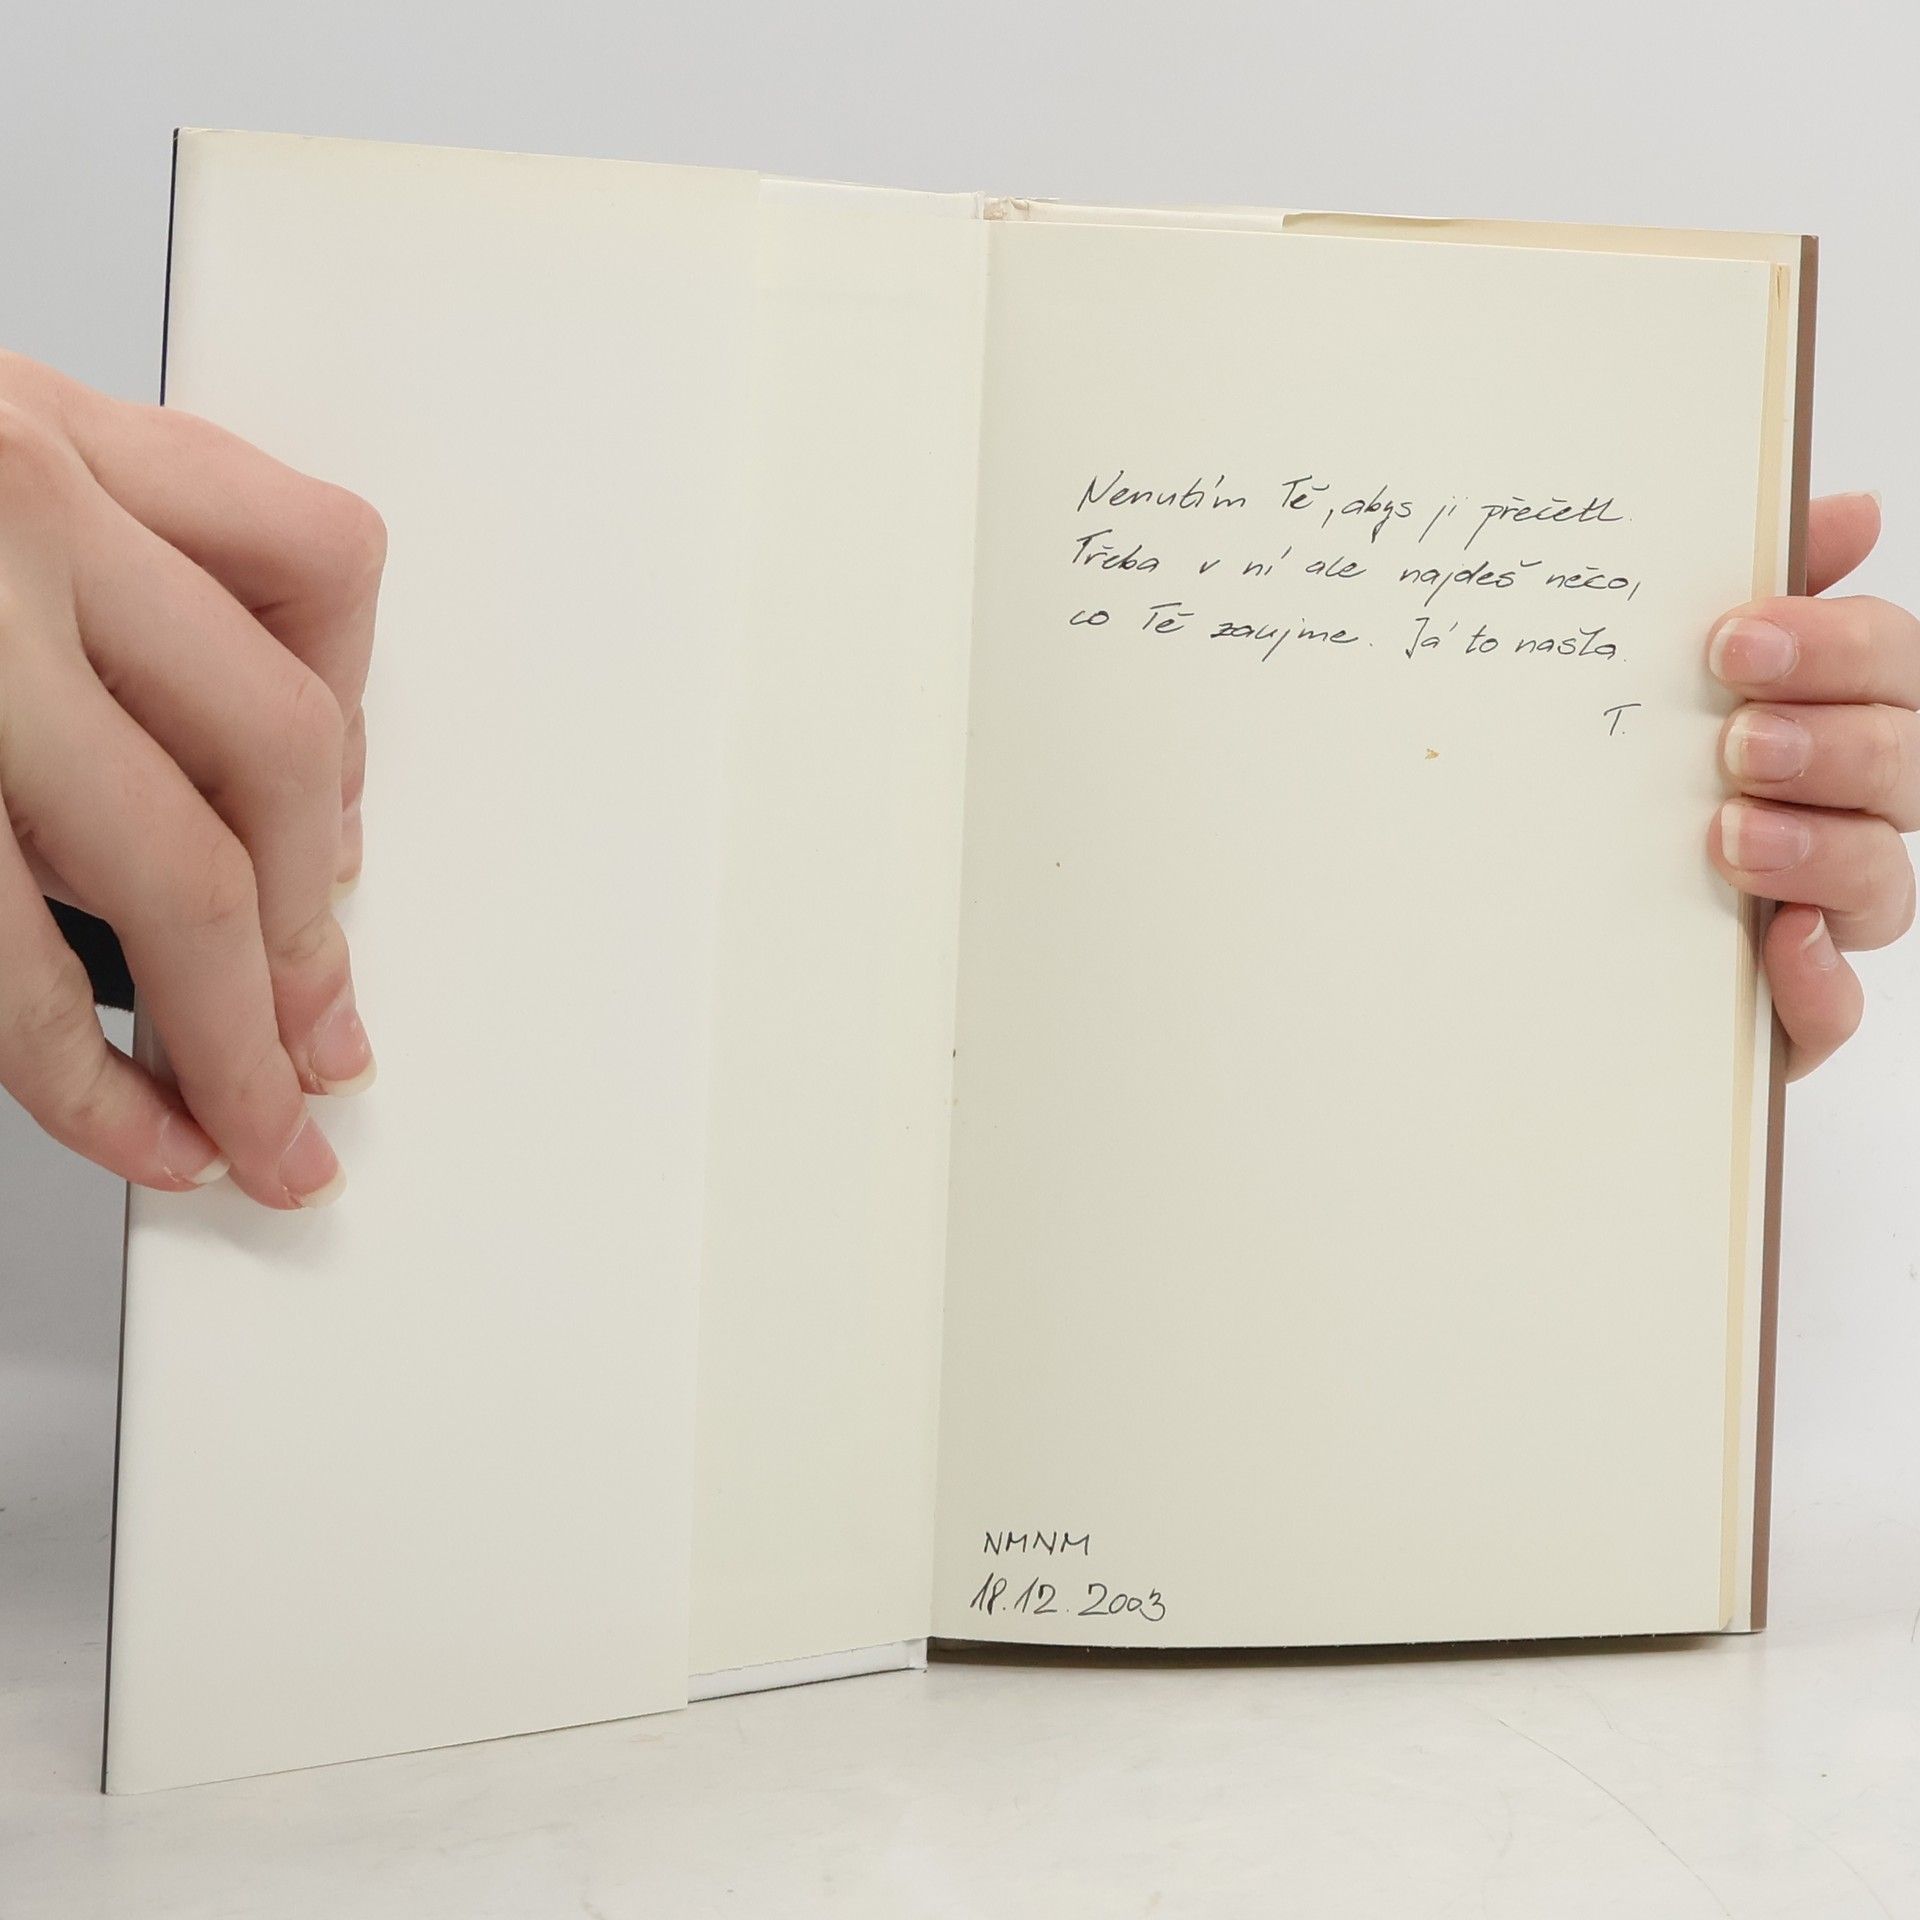 Nenutím Tě, abys ji přečetl.
Třeba v ní ale najdeš něco,
co Tě zaujme. Já to našla.
T.
NMNM
18.12.2003